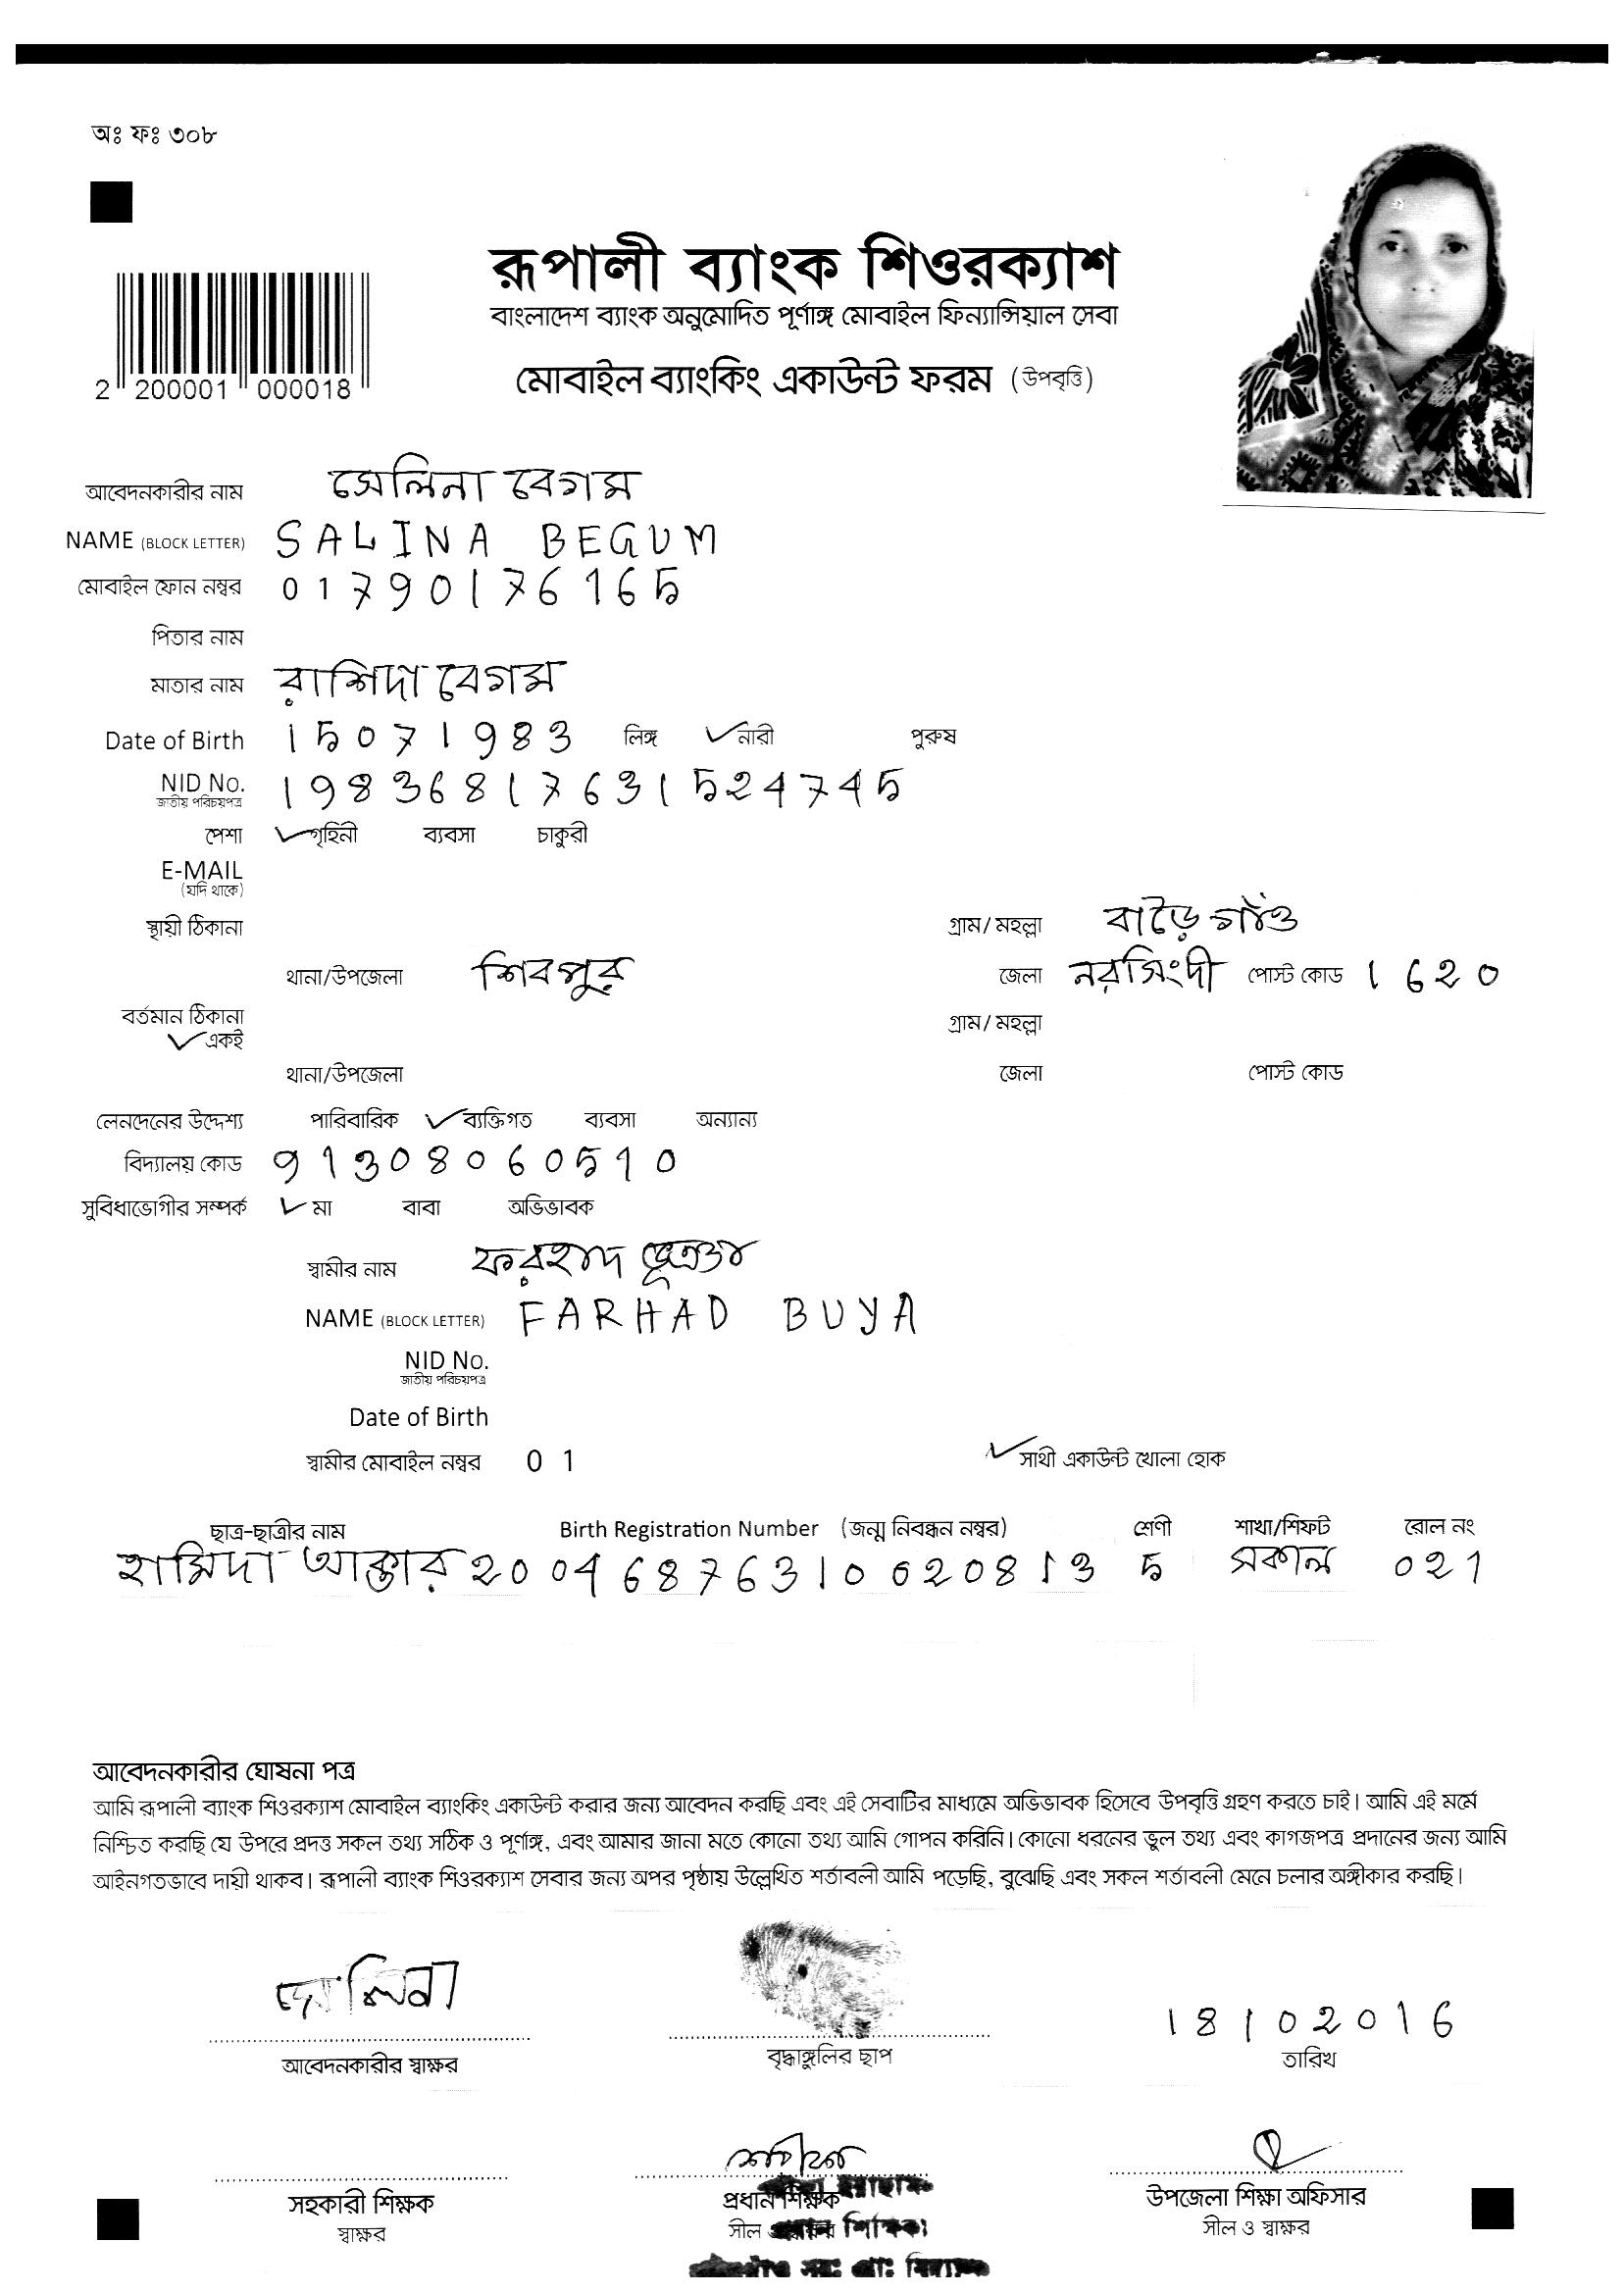 অঃ ফঃ ৩০৮
রূপালী ব্যাংক শিওরক্যাশ
বাংলাদেশ ব্যাংক অনুমোদিত পূর্ণাঙ্গ মোবাইল ফিন্যান্সিয়াল সেবা
মোবাইল ব্যাংকিং একাউন্ট ফরম (উপবৃত্তি)
2 200001 000018
আবেদনকারীর নাম সেলিনা বেগম
NAME (BLOCK LETTER) SALINA BEGUM
মোবাইল ফোন নম্বর 01790176165
পিতার নাম
মাতার নাম রাশিদা বেগম
Date of Birth 15071983 লিঙ্গ ✓নারী পুরুষ
NID No. 19836817631524745
জাতীয় পরিচয়পত্র
পেশা ✓গৃহিনী ব্যবসা চাকুরী
E-MAIL
(যদি থাকে)
স্থায়ী ঠিকানা গ্রাম/ মহল্লা বাড়ৈগাঁও
থানা/উপজেলা শিবপুর জেলা নরসিংদী পোস্ট কোড 1620
বর্তমান ঠিকানা গ্রাম/ মহল্লা
✓একই
থানা/উপজেলা জেলা পোস্ট কোড
লেনদেনের উদ্দেশ্য পারিবারিক ✓ব্যক্তিগত ব্যবসা অন্যান্য
বিদ্যালয় কোড 91308060510
সুবিধাভোগীর সম্পর্ক ✓মা বাবা অভিভাবক
স্বামীর নাম ফরহাদ
NAME (BLOCK LETTER) FARHAD BUYA
NID No.
জাতীয় পরিচয়পত্র
Date of Birth
স্বামীর মোবাইল নম্বর 01 ✓সাথী একাউন্ট খোলা হোক
ছাত্র-ছাত্রীর নাম Birth Registration Number (জন্ম নিবন্ধন নম্বর) শ্রেণী শাখা/শিফট রোল নং
হামিদা আক্তার 20046876310020813 5 সকাল 021
আবেদনকারীর ঘোষনা পত্র
আমি রূপালী ব্যাংক শিওরক্যাশ মোবাইল ব্যাংকিং একাউন্ট করার জন্য আবেদন করছি এবং এই সেবাটির মাধ্যমে অভিভাবক হিসেবে উপবৃত্তি গ্রহণ করতে চাই। আমি এই মর্মে
নিশ্চিত করছি যে উপরে প্রদত্ত সকল তথ্য সঠিক ও পূর্ণাঙ্গ, এবং আমার জানা মতে কোনো তথ্য আমি গোপন করিনি। কোনো ধরনের ভুল তথ্য এবং কাগজপত্র প্রদানের জন্য আমি
আইনগতভাবে দায়ী থাকব। রূপালী ব্যাংক শিওরক্যাশ সেবার জন্য অপর পৃষ্ঠায় উল্লেখিত শর্তাবলী আমি পড়েছি, বুঝেছি এবং সকল শর্তাবলী মেনে চলার অঙ্গীকার করছি।
সেলিনা 18102016
আবেদনকারীর স্বাক্ষর বৃদ্ধাঙ্গুলির ছাপ তারিখ
সহকারী শিক্ষক প্রধান শিক্ষক উপজেলা শিক্ষা অফিসার
স্বাক্ষর সীল ও স্বাক্ষর সীল ও স্বাক্ষর
প্রধান শিক্ষক